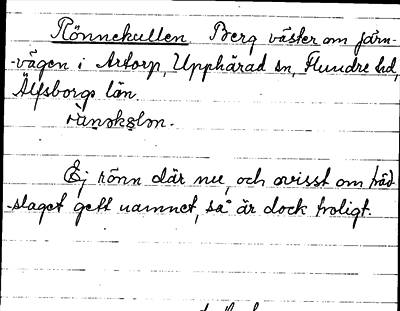 Rönnekullen Berg väster om järn-
-vägen i Artorp, Upphärad sn, Flundre hd,
Älfsborgs län.
Ej rönn där nu, och ovisst om träd
-slaget gett namnet, så är dock troligt.